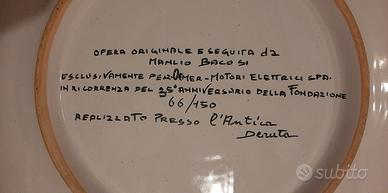 OPERA ORIGINALE ESEGUITA da
MANLIO BACOSI
ESCLUSIVAMENTE PER OMER-MOTORI ELETTRICI S.P.A.
IN RICORRENZA DEL 35° ANNIVERSARIO DELLA FONDAZIONE
66/150
REALIZZATO PRESSO l'Antica
Deruta
subito